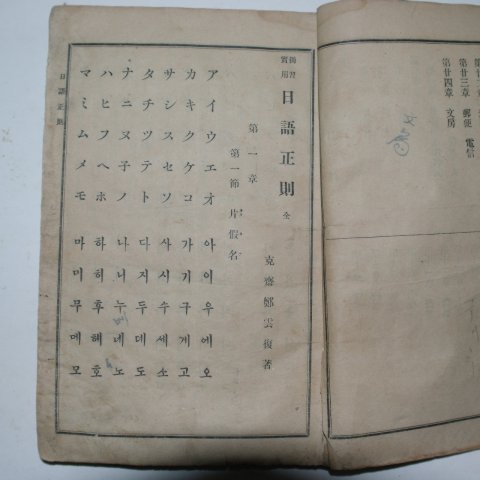 第廿三章 郵便 電信
第廿四章 文房
獨習
實用
日語正則 全
克齋鄭雲復著
第一章
第一節 片假名
アイウエオ 아이우에오
カキクケコ 가기구게고
サシスセソ 사시수세소
タチツテト 다지두데도
ナニヌ子ノ 나니누네노
ハヒフヘホ 하히후헤호
マミムメモ 마미무메모
日語正則